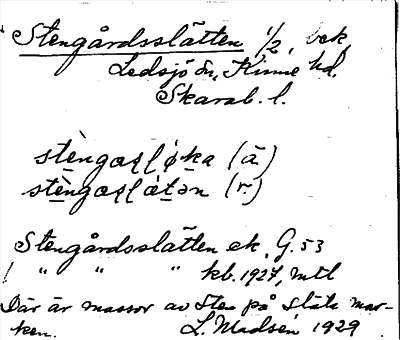 Stengårdsslätten 1/2, bek,
Ledsjö sn, Kinne hd.
Skarab. l.
stèngaʂɭø̀ka (ä)
stèngaʂɭàtən (r.)
Stengårdsslätten ek, G. 53
" " " kb. 1927, mtl
Där är massor av sten på släta mar-
ken. L. Madsén 1929